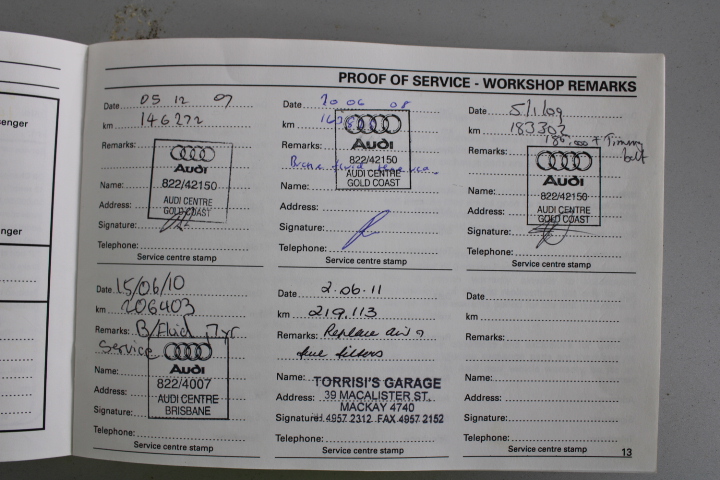 PROOF OF SERVICE - WORKSHOP REMARKS
senger
enger
Date 05 12 07
km 146272
Remarks:
Audi
822/42150
Name:
AUDI CENTRE
Address:
GOLD COAST
Signature:
Telephone:
Service centre stamp
Date 20 06 08
km
Remarks:
Audi
822/42150
Brake fluid
AUDI CENTRE
Name:
GOLD COAST
Address:
Signature:
Telephone:
Service centre stamp
Date 5/1/09
km 183302
180,000 + Timing
Remarks: belt
Audi
Name:
822/42150
Address: AUDI CENTRE
GOLD COAST
Signature:
Telephone:
Service centre stamp
Date 15/06/10
km 206403
Remarks: B/Fluid 7yr
Service
Name: Audi
822/4007
Address: AUDI CENTRE
Signature: BRISBANE
Telephone:
Service centre stamp
Date 2.06.11
km 219,113
Remarks: Replace air &
fuel filters
Name: TORRISI'S GARAGE
Address: 39 MACALISTER ST.
MACKAY 4740
Signature: 4957 2312 FAX 4957 2152
Telephone:
Service centre stamp
Date
km
Remarks:
Name:
Address:
Signature:
Telephone:
Service centre stamp
13